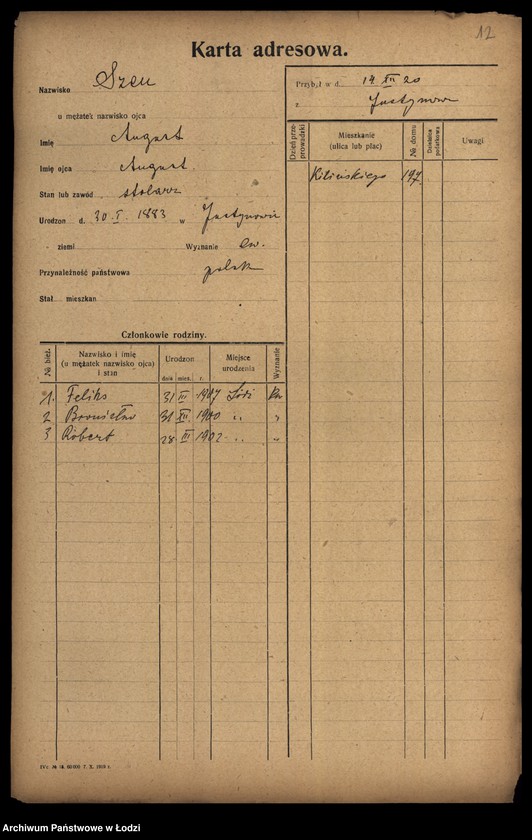 12
Karta adresowa.
Nazwisko Szeu
u mężatek nazwisko ojca
Imię August
Imię ojca August
Stan lub zawód stolarz
Urodzon d. 30. I. 1883 w Justynowie
ziemi Wyznanie Ew.
Przynależność państwowa polak
Stał. mieszkan.
Przybył w d. 14 XII 20
z Justynowa
Dzień przeprowadzki
Mieszkanie (ulica lub plac)
№ domu
Dzielnica podatkowa
Uwagi
Kilińskiego 197
Członkowie rodziny.
№ bież.
Nazwisko i imię
(u mężatek nazwisko ojca)
i stan
Urodzon
dnia mies. r.
Miejsce urodzenia
Wyznanie
1. Feliks 31 III 1907 Łódź
2 Bronisław 31 XII. 1900 „ „
3 Robert 28. III 1902 „ „
Archiwum Państwowe w Łodzi